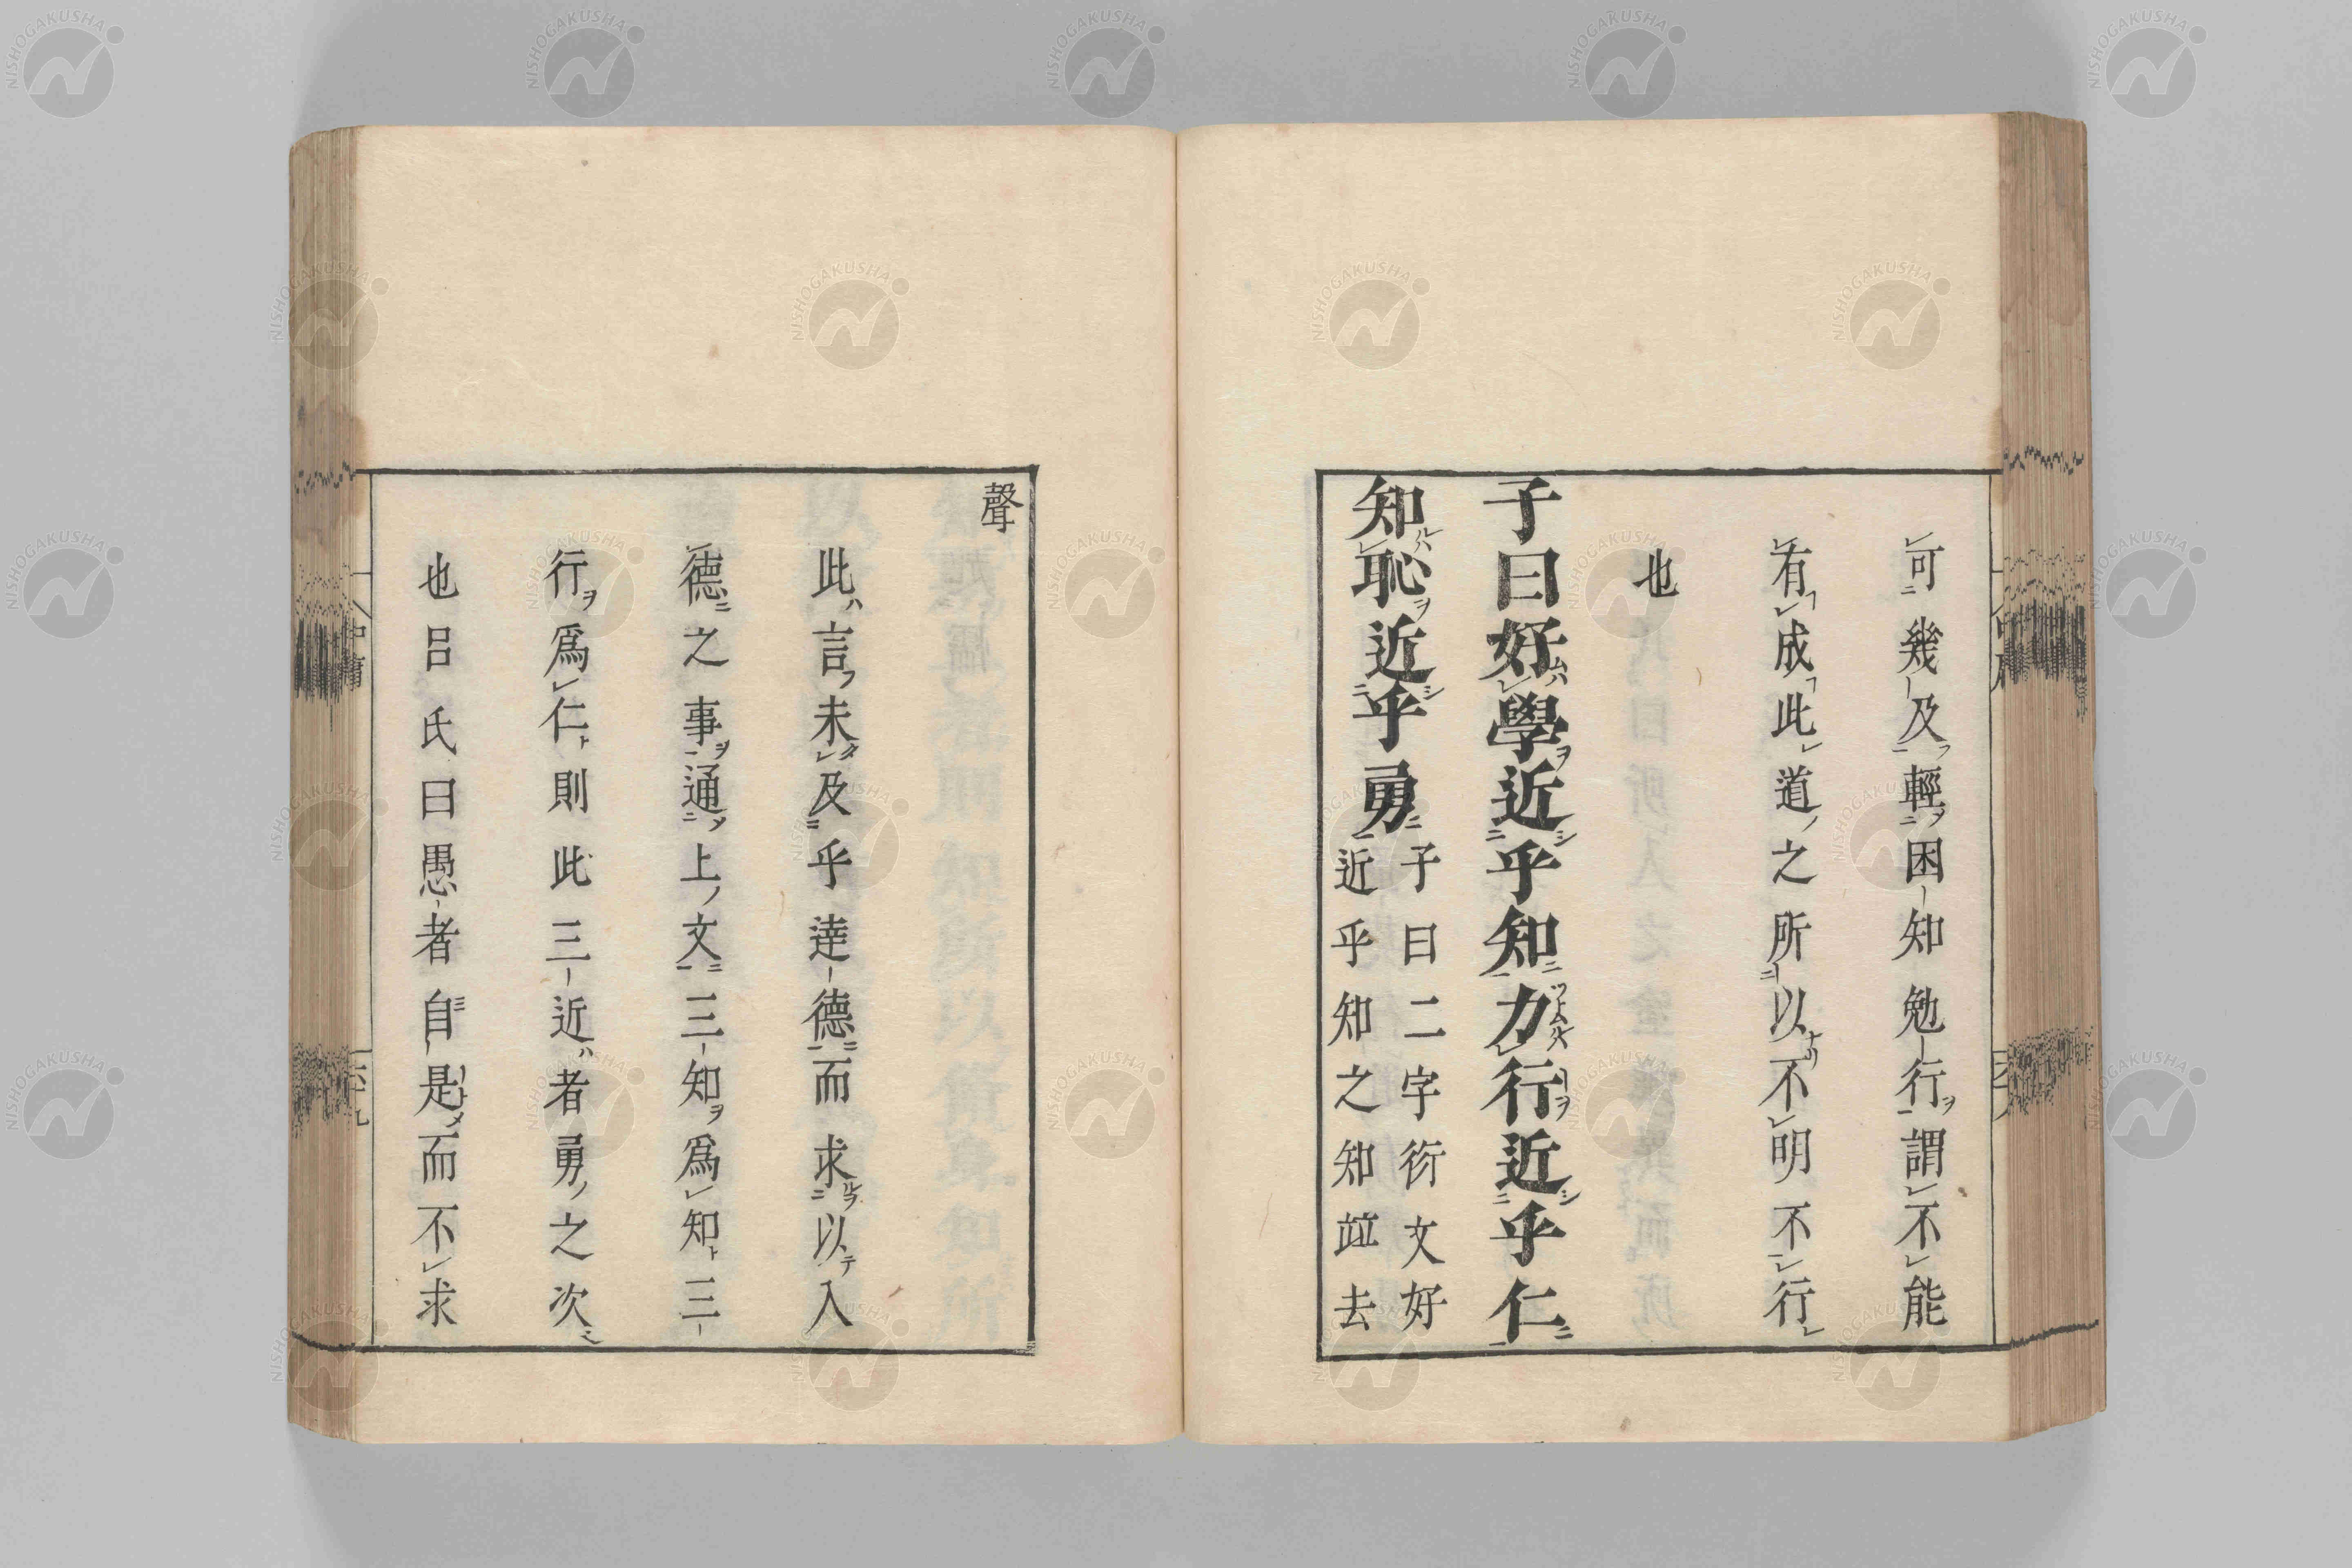 可幾及輕困知勉行謂不能
有成此道之所以不明不行
也
子曰好學近乎知力行近乎仁
知恥近乎勇
子曰二字衍文好
近乎知之知竝去
聲
此言未及乎達德而求以入
德之事通上文三知爲知三
行爲仁則此三近者勇之次
也呂氏曰愚者自是而不求